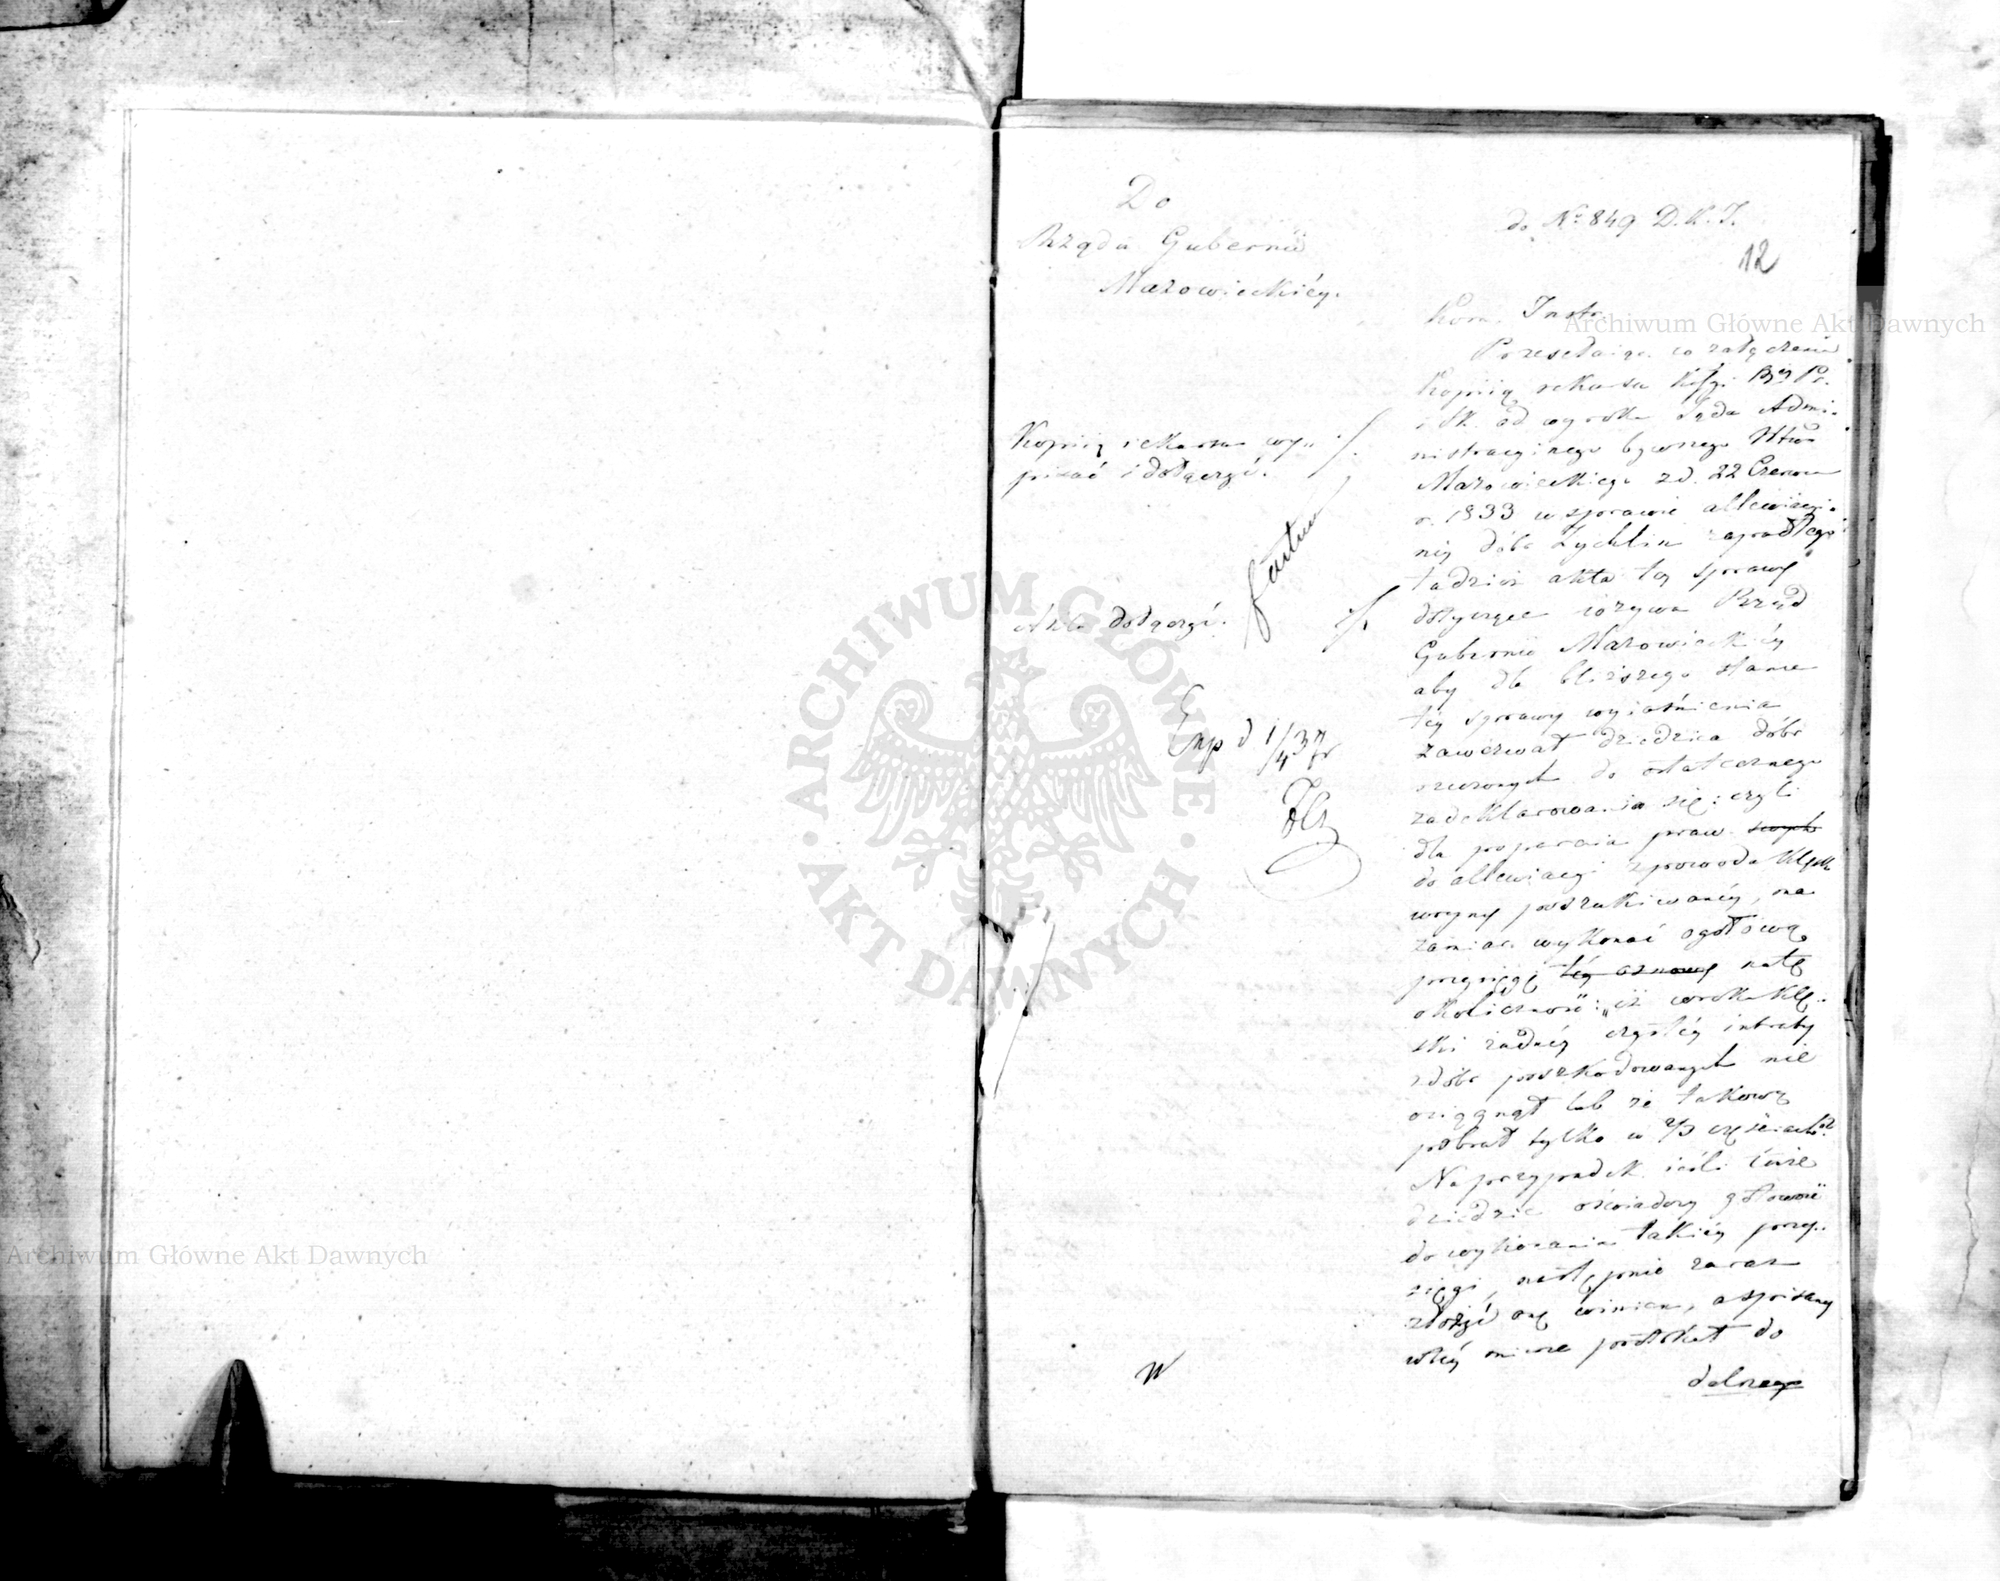 Do
Rządu Gubernii
Mazowieckiéy.
do Nº 849 D.K.J.
12
Kom. Instr.
Przesełaiąc w załączeniu
Kopiią rekursu
od wyroku Sądu Admi-
nistracyinego bywszego Wtwa
Mazowieckiego z d. 22 Czerwca
r. 1833 w sprawie allewiacyi-
néy dóbr Żychlin zapadłego
tudzież akta téy sprawy
dotyczące wzywa Rząd
Gubernii Mazowieckiéy
aby dla bliższego stanu
téy sprawy wyiaśnienia
zawezwał dziedzica dóbr
rzeczonych do ostatecznego
zadeklarowania się: czyli
dla poparcia praw swych
do allewiacyi z powodu klęsk
woyny poszukiwanéy, ma
zamiar wykonać ogółową
przysięgę téy osnowy na tę
okoliczność: „iż w roku klę-
ski żadnéy czystéy intraty
z dóbr poszkodowanych nie
osiągnął lub że takową
pobrał tylko w 2/3 częściach?"
Na przypadek ieśli tenże
dziedzic oświadczy gotowość
do wykonania takiéy przy-
sięgi, następnie zaraz
złożyć onę winien, a spisany
w téy mierze protokół do
dalszego
Kopiią rekursu wy-
pisać i dołączyć.
Akta dołączyć.
Exp d 1/4 37 r
W
Archiwum Główne Akt Dawnych
Archiwum Główne Akt Dawnych
ARCHIWUM GŁÓWNE · AKT DAWNYCH ·